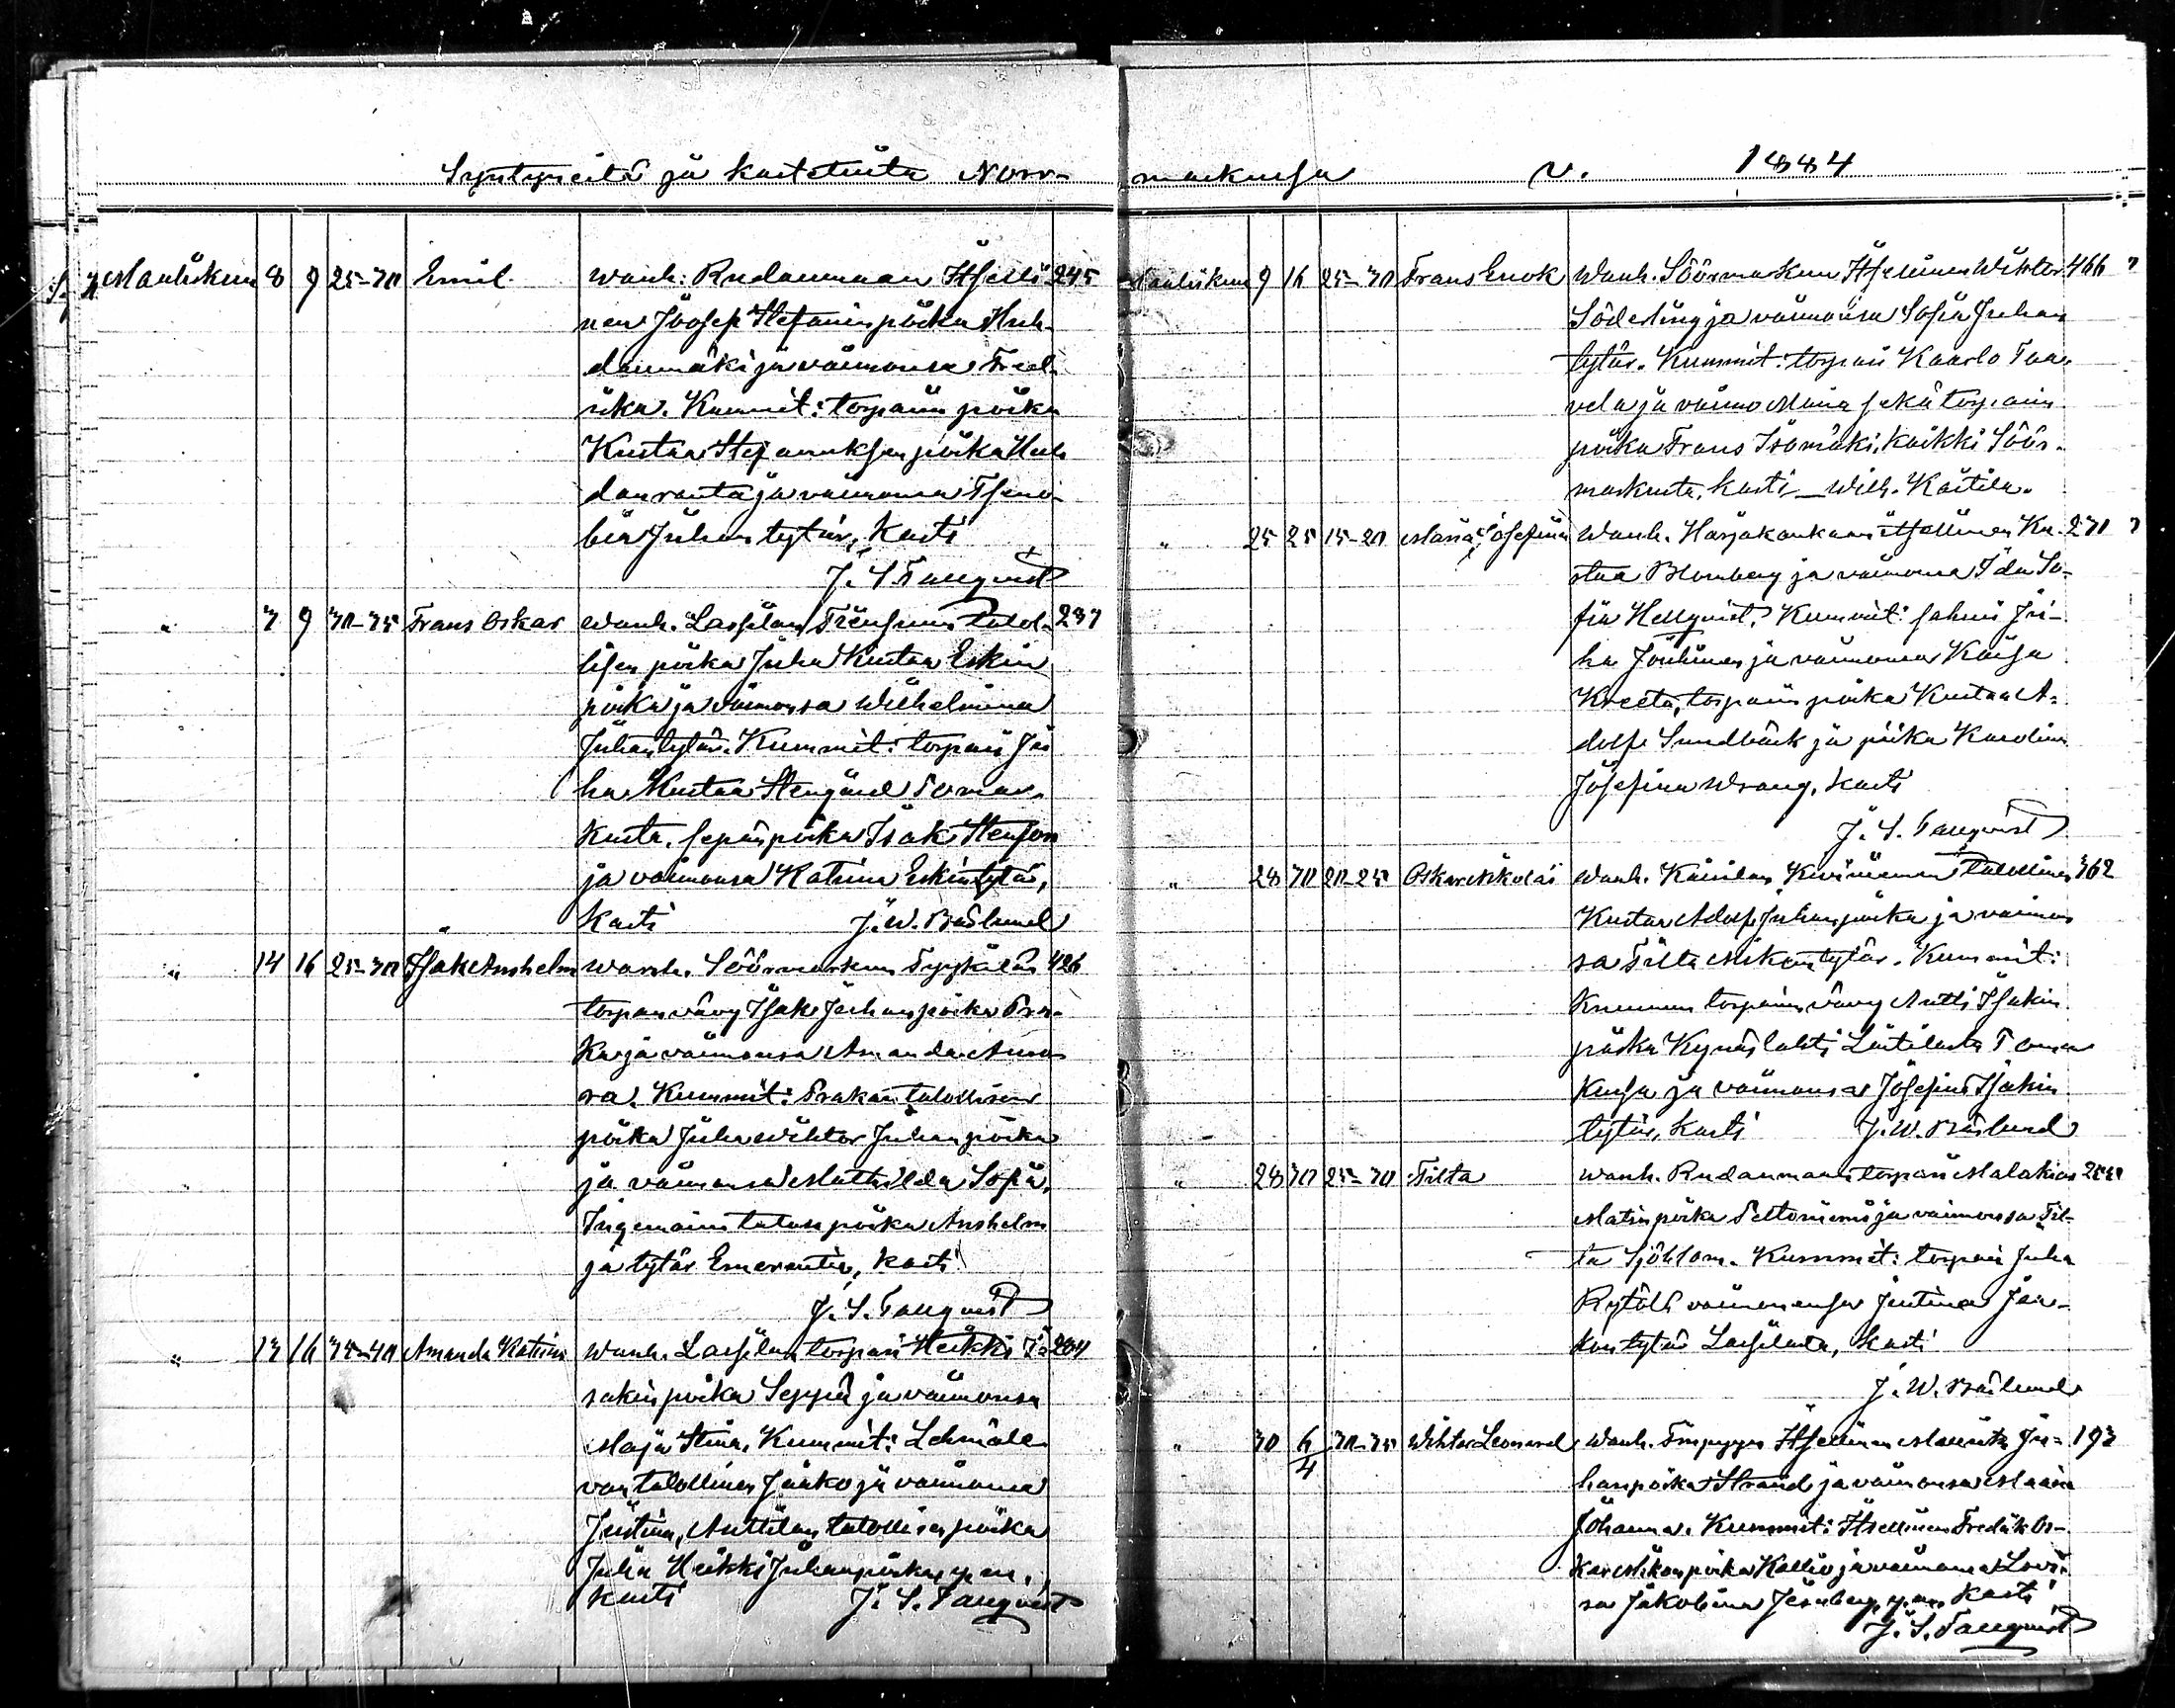 Syntyneitä ja kastetuita Norr-
Maaliskun 8 9 25-30 Emil Wanh. Rudanmaan Itselli- 245
nen Joosef Stefanin poika Huh-
danmäki ja vaimonsa Fred-
rika. Kummit: torparin poika
Kustaa Stefanuksen poika Huh
danranta ja vaimonsa
Juhan tytär, Kasti
J. S. Tanqvist
" 7 9 30-35 Frans Oskar Wanh. Lassilan talol- 237
lisen poika Juha Kustaa Eskin
poika ja vaimonsa Wilhelmina
Juhantytär. Kummit: torpari Ju
ha Kustaa Pomar-
kusta, sepän poika Isak Stenfors
ja vaimonsa Katrina Eskintytär,
Kasti J. W. Båslund
" 14 16 25-30 Isak Anshelm Wanh. Söörmarkun 426
torpan vävy Isak Juhanpoika Pra-
ka ja vaimonsa Amanda
Kummit: Prakan talollisen
poika Juha Wihtor Juhanpoika
ja vaimonsa Mathilda Sofia,
talon poika Anshelm
ja tytär Emerentia, Kasti
J. S. Tanqvist
" 13 16 35-40 Amanda Katrina Wanh. Lassilan torpari Heikki I- 204
sakin poika Seppä ja vaimonsa
Maja Stina. Kummit: Lehmäle-
von talollinen Jaakko ja vaimonsa
Justina, Anttilan talollisen poika
Juha Heikki Juhanpoika y.m.,
Kasti J. S. Tanqvist
markussa v. 1884
Maaliskun 9 16 25-30 Frans Enok Wanh. Söörmarkun Itsellinen Wihtor 466
Söderling ja vaimonsa Sofia Juhan
tytär. Kummit: torpari Kaarlo Taa-
vela ja vaimo Miina sekä torparin
poika Frans Isomäki, kaikki Söör-
markusta, kasti Wilh. Käitila.
" 25 25 15-20 Maria Josefina Wanh. Harjakankaan itsellinen Ku- 271
staa Blomberg ja vaimonsa Ida So-
fia Hellqvist. Kummit: sahuri Ju-
ha ja vaimonsa Kaisa
Kreeta, torparin poika Kustaa A-
dolf Sundbäck ja piika Karolina
Josefina Wrang, kasti
J. S. Tanqvist
" 28 30 20-25 Oskar Nikolai Wanh. talollinen 362
Kustaa Adolf Juhanpoika ja vaimon
sa Tilta Mikontytär. Kummit:
Kruunun torparin vävy Antti Isakin
poika Kynäslahti Pomar
kussa ja vaimonsa Josefina Isakin
tytär, Kasti J. W. Båslund
" 28 30 25-30 Tilta Wanh. Rudanmaan torpari Malakias
Matinpoika Peltoniemi ja vaimonsa Til-
ta Sjöblom. Kummit: torpari Juha
vaimonensa Justina Jaa-
kontytär Lassilasta, Kasti
J. W. Båslund
" 30 6/4 30-35 Wihtor Leonard Wanh. Itsellinen Maurits Ju- 193
hanpoika Strand ja vaimonsa Maria
Johanna. Kummit: Itsellinen Fredrik Os-
kar Mikonpoika Kallio ja vaimonsa Lovi-
sa Jakobina y.m. Kasti
J. S. Tanqvist